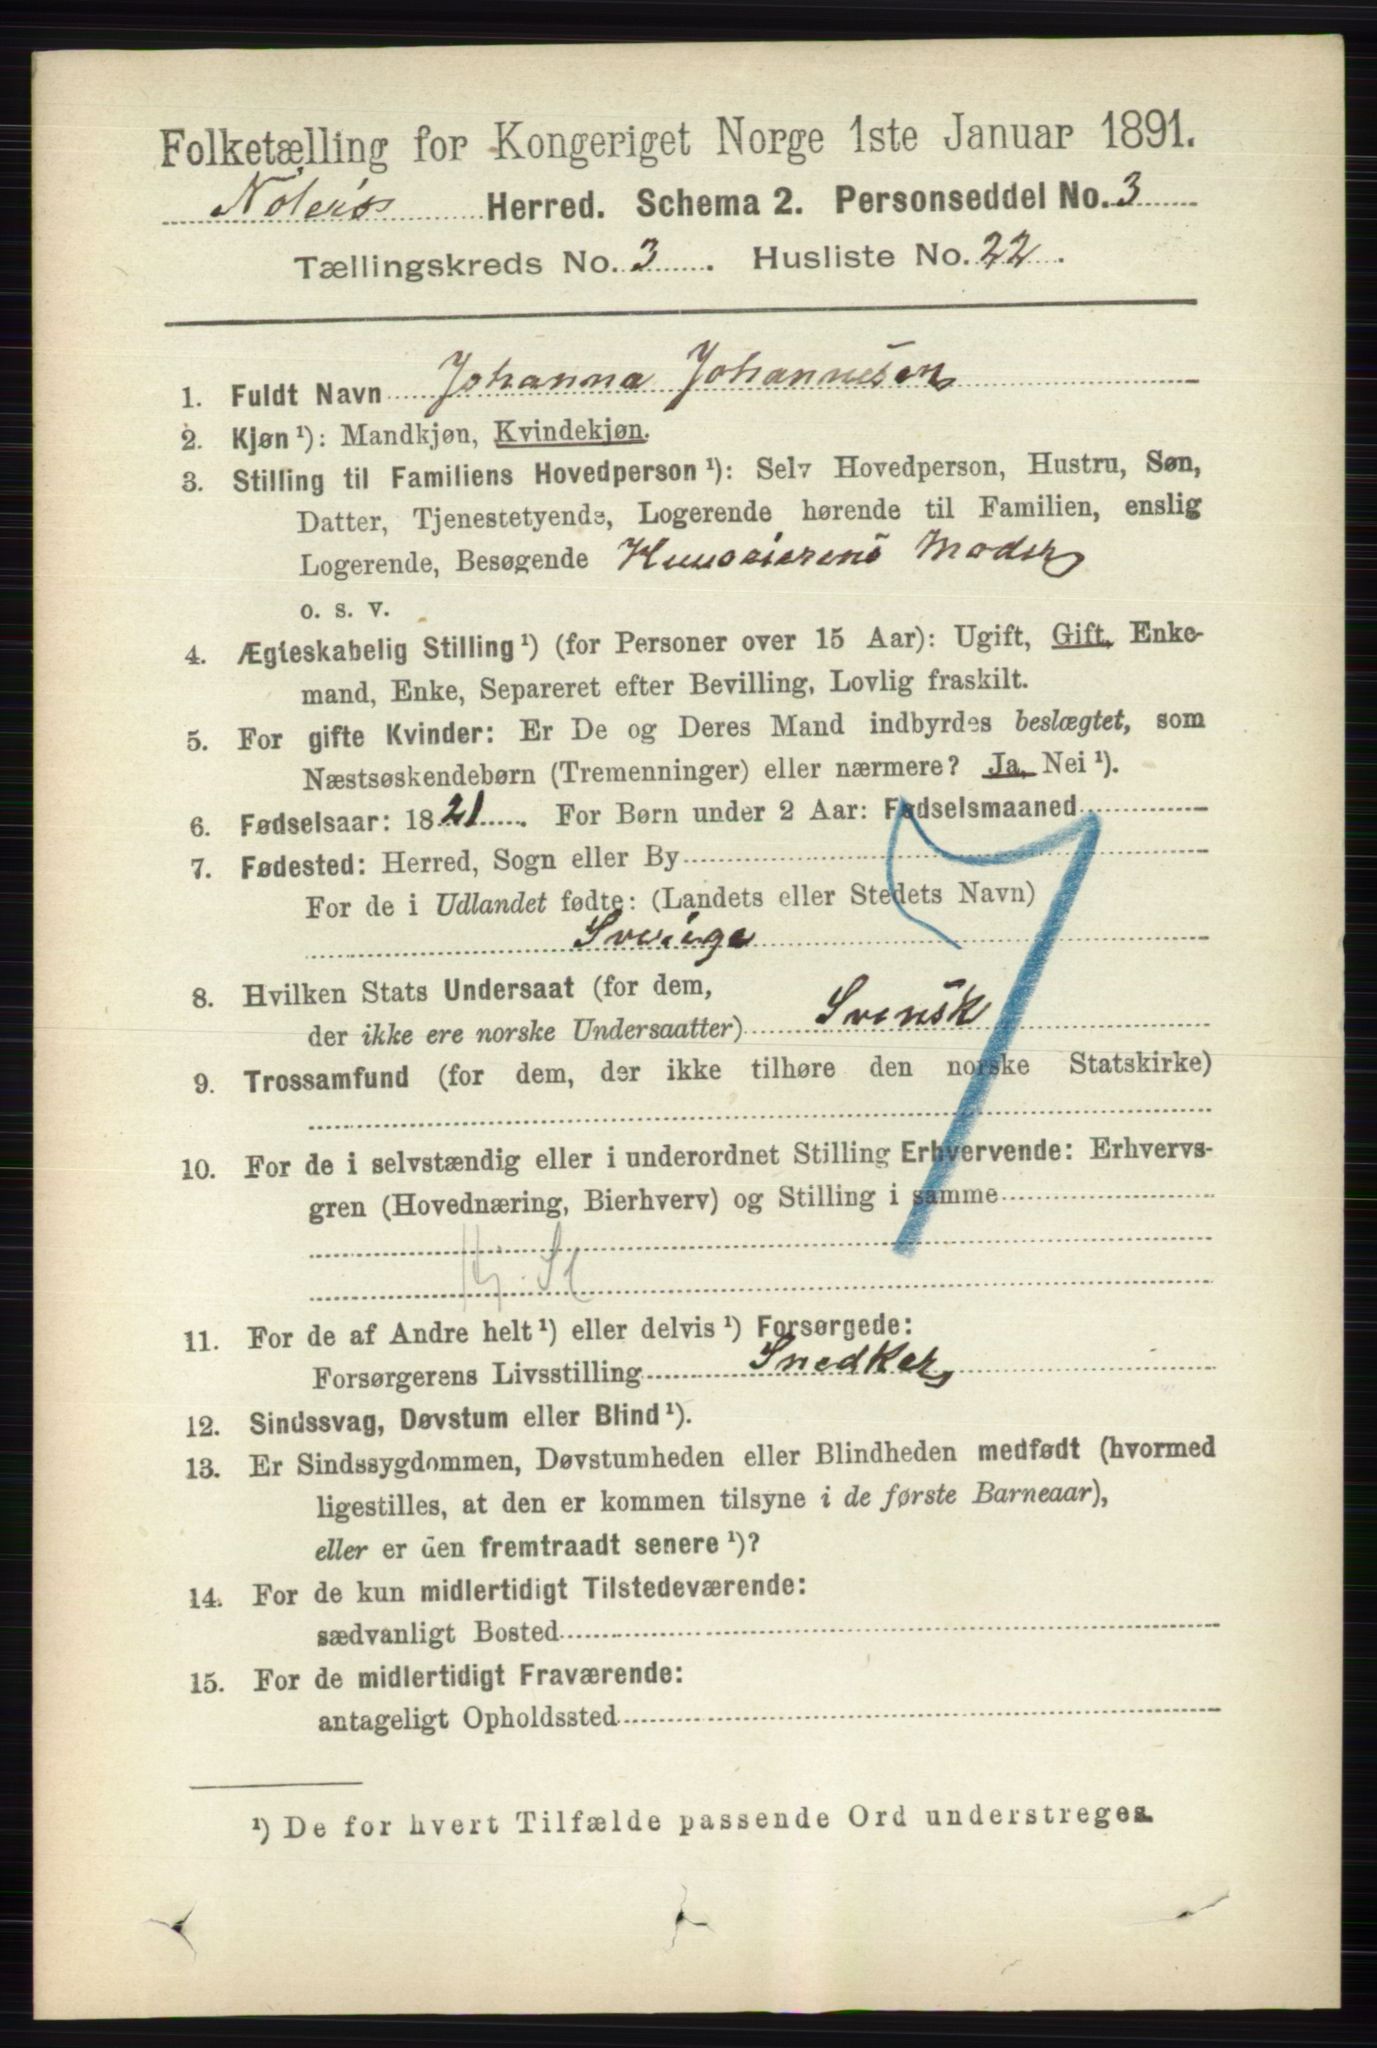 Folketælling for Kongeriget Norge 1ste Januar 1891.
Nøterøs Herred. Schema 2. Personseddel No. 3
Tællingskreds No. 3. Husliste No. 22.
1. Fuldt Navn Johanna Johannesen
2. Kjøn ¹): Mandkjøn, Kvindekjøn.
3. Stilling til Familiens Hovedperson ¹): Selv Hovedperson, Hustru, Søn,
Datter, Tjenestetyende, Logerende hørende til Familien, enslig
Logerende, Besøgende Huuseierens Moder
o. s. v.
4. Ægteskabelig Stilling ¹) (for Personer over 15 Aar): Ugift, Gift, Enke-
mand, Enke, Separeret efter Bevilling, Lovlig fraskilt.
5. For gifte Kvinder: Er De og Deres Mand indbyrdes beslægtet, som
Næstsøskendebørn (Tremenninger) eller nærmere? Ja, Nei ¹).
6. Fødselsaar: 1821. For Børn under 2 Aar: Fødselsmaaned
7. Fødested: Herred, Sogn eller By
For de i Udlandet fødte: (Landets eller Stedets Navn)
Sverige
8. Hvilken Stats Undersaat (for dem,
der ikke ere norske Undersaatter) Svensk
9. Trossamfund (for dem, der ikke tilhøre den norske Statskirke)
10. For de i selvstændig eller i underordnet Stilling Erhvervende: Erhvervs-
gren (Hovednæring, Bierhverv) og Stilling i samme
11. For de af Andre helt ¹) eller delvis ¹) Forsørgede:
Forsørgerens Livsstilling Snedker
12. Sindssvag, Døvstum eller Blind ¹).
13. Er Sindssygdommen, Døvstumheden eller Blindheden medfødt (hvormed
ligestilles, at den er kommen tilsyne i de første Barneaar),
eller er den fremtraadt senere ¹)?
14. For de kun midlertidigt Tilstedeværende:
sædvanligt Bosted
15. For de midlertidigt Fraværende:
antageligt Opholdssted
¹) De for hvert Tilfælde passende Ord understreges.